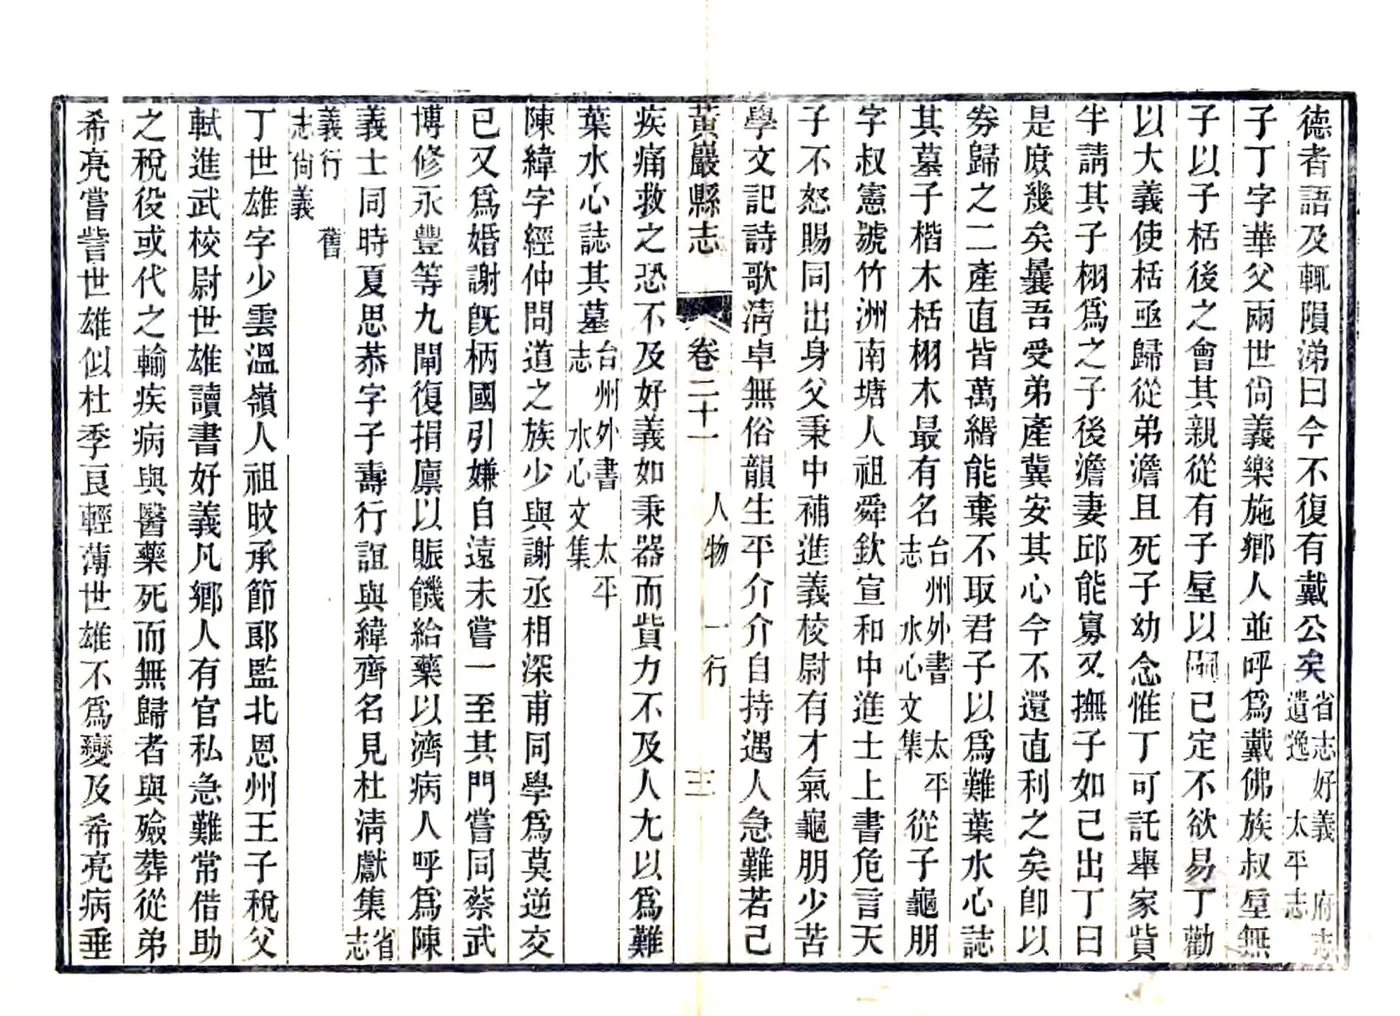 德者語及輒隕涕曰今不復有戴公矣省志好義 府志遺逸 太平志
子丁字華父兩世尙義樂施鄉人並呼爲戴佛族叔垕無
子以子栝後之會其親從有子垕以嗣已定不欲易丁勸
以大義使栝亟歸從弟澹且死子幼念惟丁可託舉家貲
半請其子栩爲之子後澹妻邱能寡又撫子如己出丁曰
是庶幾矣曩吾受弟產冀安其心今不還直利之矣卽以
券歸之二產直皆萬緡能棄不取君子以爲難葉水心誌
其墓子楷木栝栩木最有名台州外書 太平志 水心文集 從子龜朋
字叔憲號竹洲南塘人祖舜欽宣和中進士上書危言天
子不怒賜同出身父秉中補進義校尉有才氣龜朋少苦
學文記詩歌淸卓無俗韻生平介介自持遇人急難若己
黃巖縣志 卷二十一 人物 一行 三
疾痛救之恐不及好義如秉器而貲力不及人尤以爲難
葉水心誌其墓台州外書 太平志 水心文集
陳緯字經仲問道之族少與謝丞相深甫同學爲莫逆交
已又爲婚謝旣柄國引嫌自遠未嘗一至其門嘗同蔡武
博修永豐等九閘復捐廩以賑饑給藥以濟病人呼爲陳
義士同時夏思恭字子壽行誼與緯齊名見杜淸獻集省志
義行 舊志尙義
丁世雄字少雲溫嶺人祖旼承節郞監北恩州王子稅父
軾進武校尉世雄讀書好義凡鄉人有官私急難常借助
之稅役或代之輸疾病與醫藥死而無歸者與殮葬從弟
希亮嘗訾世雄似杜季良輕薄世雄不爲變及希亮病垂